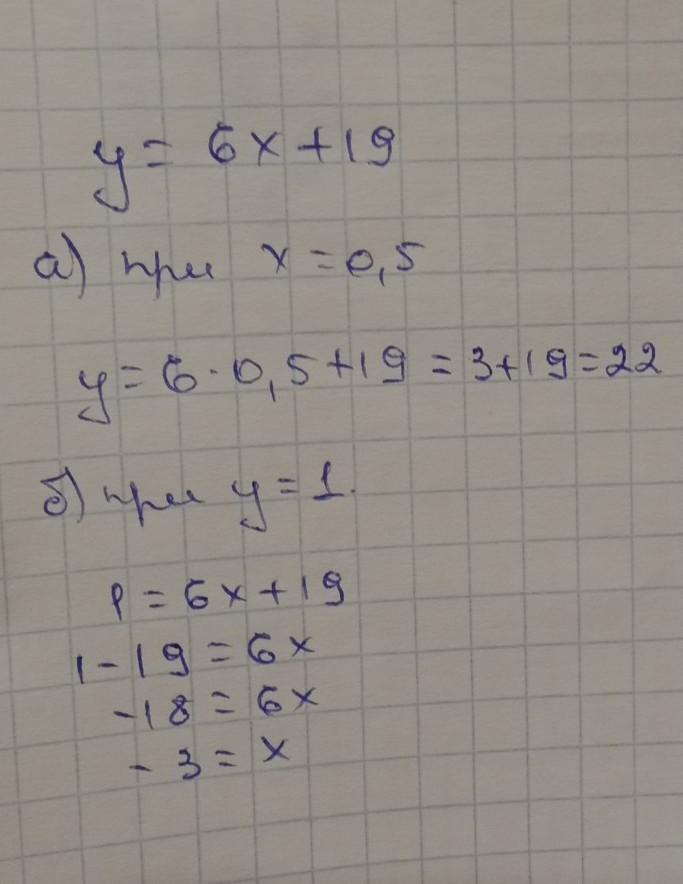 y = 6x + 19
а) при x = 0,5
y = 6 · 0,5 + 19 = 3 + 19 = 22
б) при y = 1.
1 = 6x + 19
1 - 19 = 6x
-18 = 6x
-3 = x